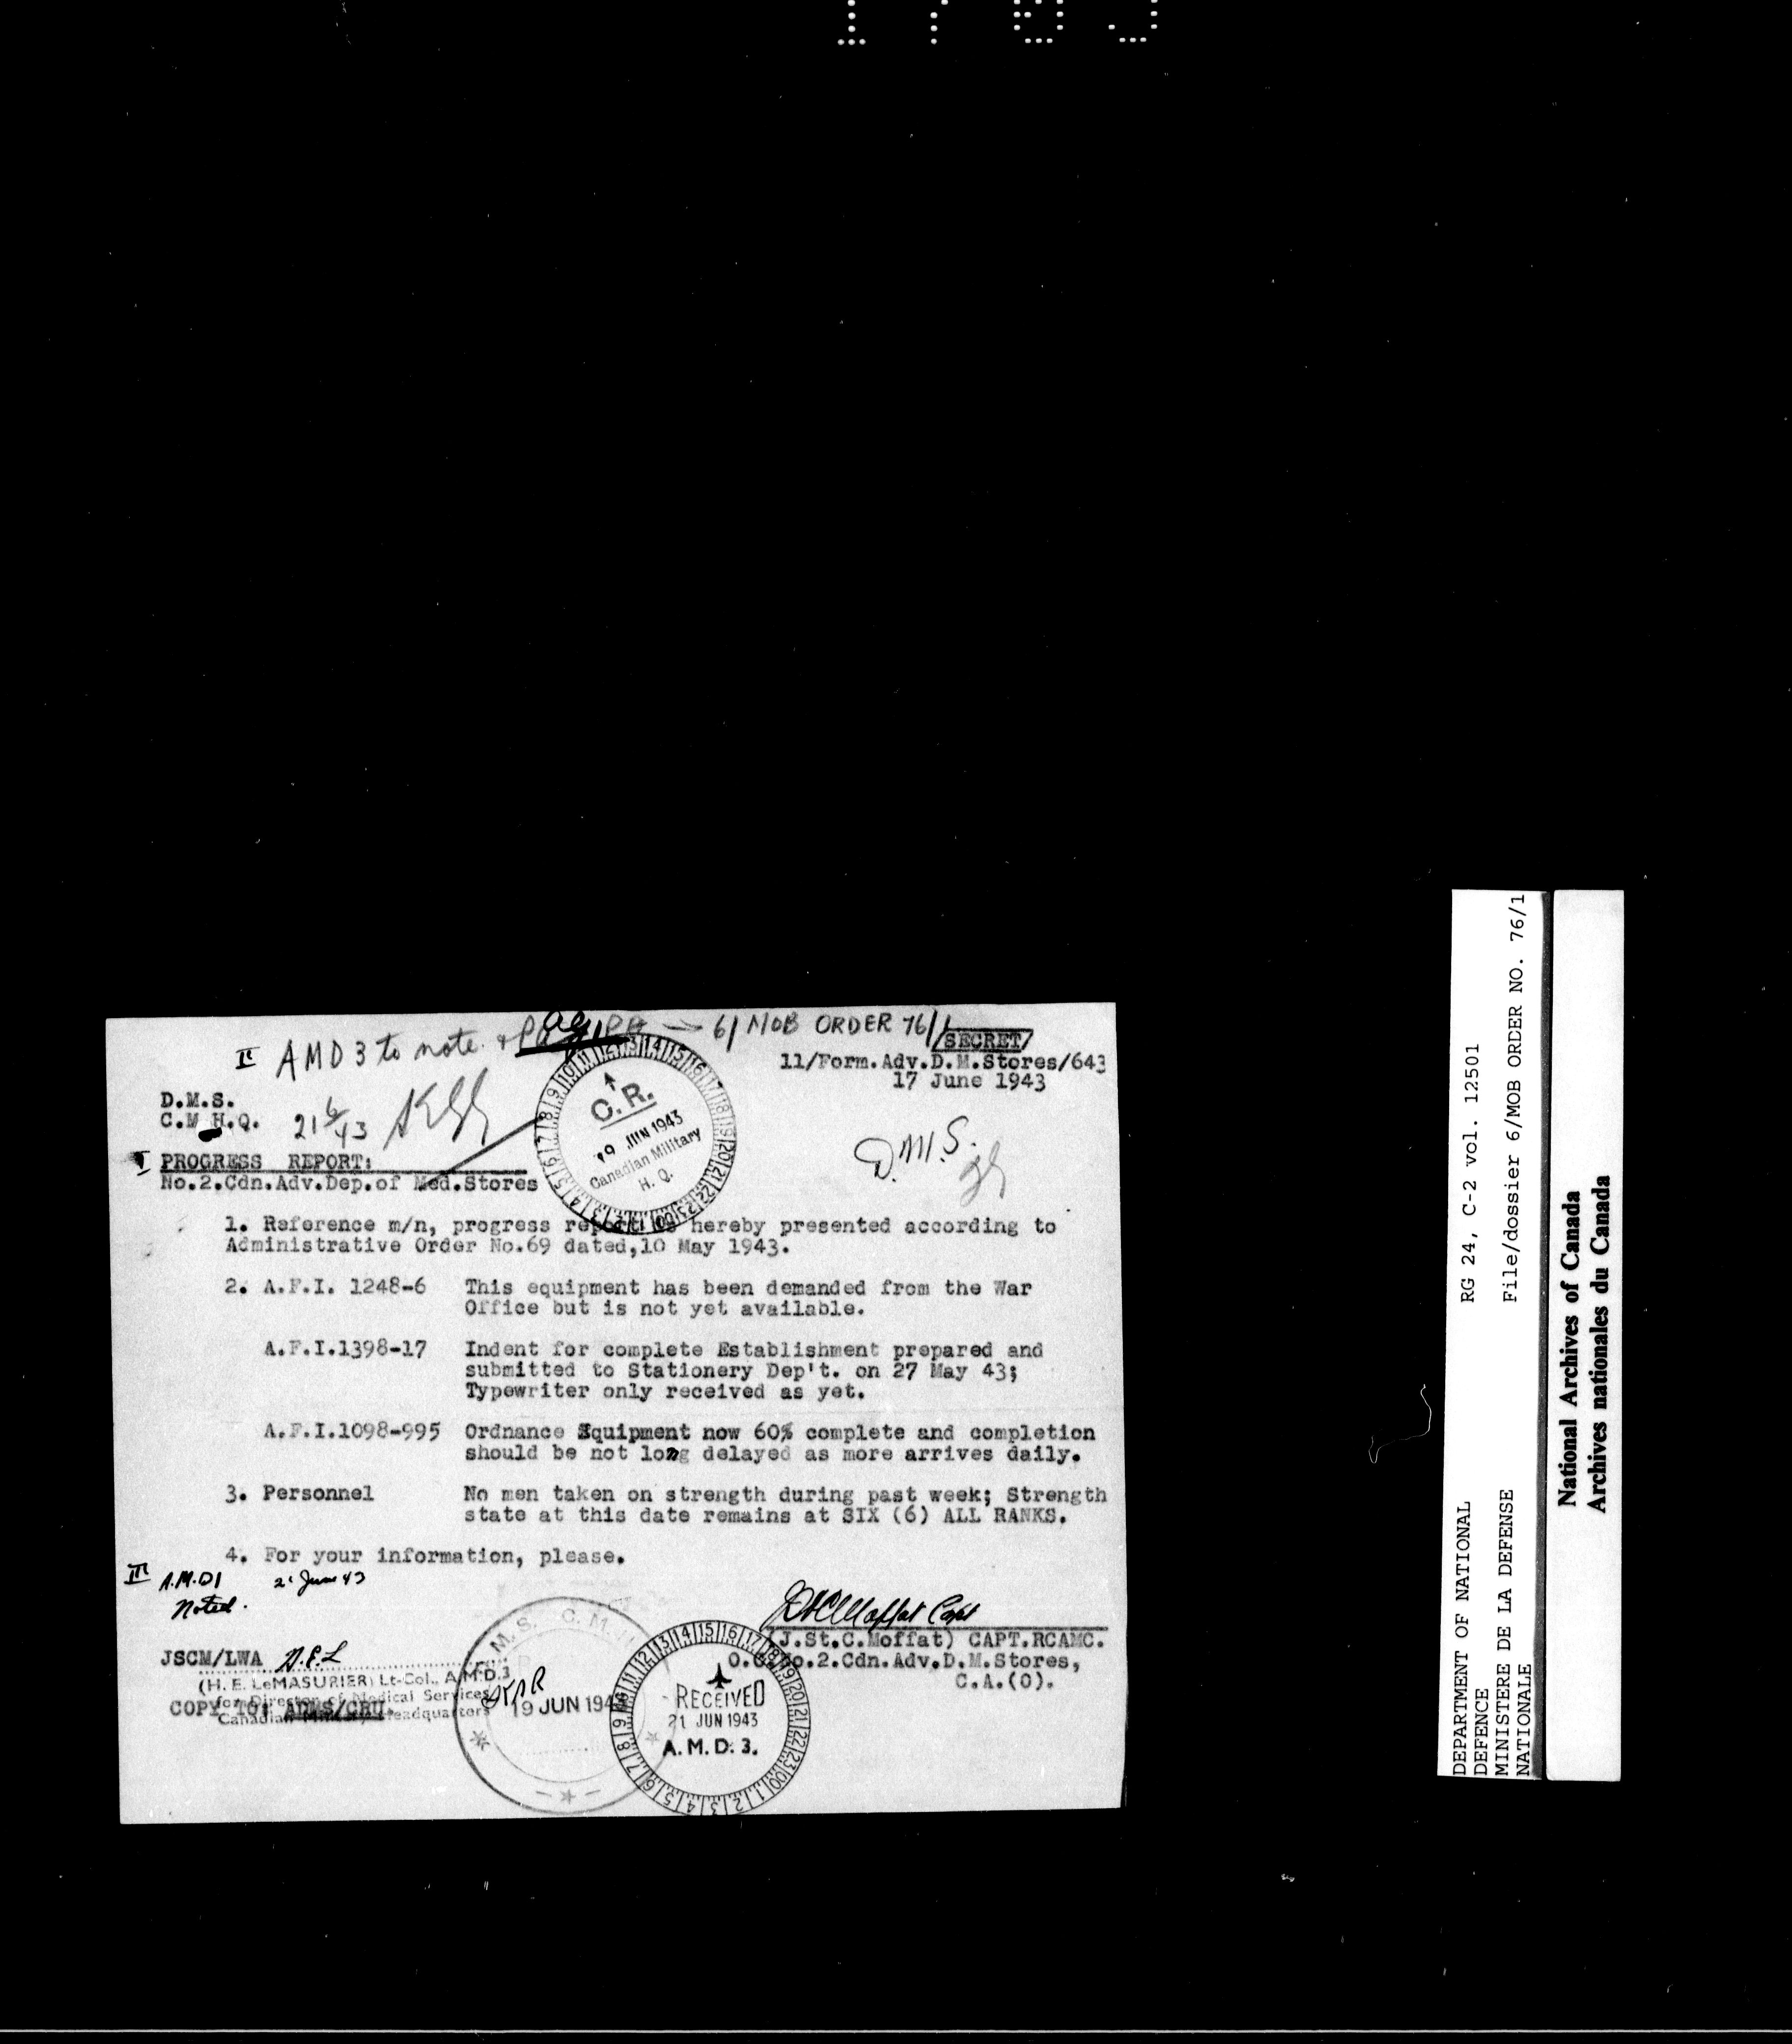 1703
6/ MOB ORDER 76/1
SECRET
II AMD 3 to note.
11/Form.Adv.D.M.Stores/643
17 June 1943
D.M.S.
C.M.H.Q.
21/6/43
C.R.
19 JUN 1943
Canadian Military
H. Q.
D.M.S.
I PROGRESS REPORT:
No.2.Cdn.Adv.Dep.of Med.Stores
1. Reference m/n, progress report is hereby presented according to
Administrative Order No.69 dated,10 May 1943.
2. A.F.I. 1248-6 This equipment has been demanded from the War
Office but is not yet available.
A.F.I.1398-17 Indent for complete Establishment prepared and
submitted to Stationery Dep't. on 27 May 43;
Typewriter only received as yet.
A.F.I.1098-995 Ordnance Equipment now 60% complete and completion
should be not long delayed as more arrives daily.
3. Personnel No men taken on strength during past week; Strength
state at this date remains at SIX (6) ALL RANKS.
4. For your information, please.
III A.M.D1 21 June 43
Noted.
Moffat Capt
(J.St.C.Moffat) CAPT.RCAMC.
O.C.No.2.Cdn.Adv.D.M.Stores,
C.A.(O).
JSCM/LWA H.E.L
(H. E. LeMASURIER) Lt-Col., A.M.D.3
for Director of Medical Services
Canadian Military Headquarters
COPY TO: ADMS/CRU.
D.M.S. C.M.H.Q.
19 JUN 1943
RECEIVED
21 JUN 1943
A. M. D. 3.
DEPARTMENT OF NATIONAL
DEFENCE
MINISTERE DE LA DEFENSE
NATIONALE
RG 24, C-2 vol. 12501
File/dossier 6/MOB ORDER NO. 76/1
National Archives of Canada
Archives nationales du Canada